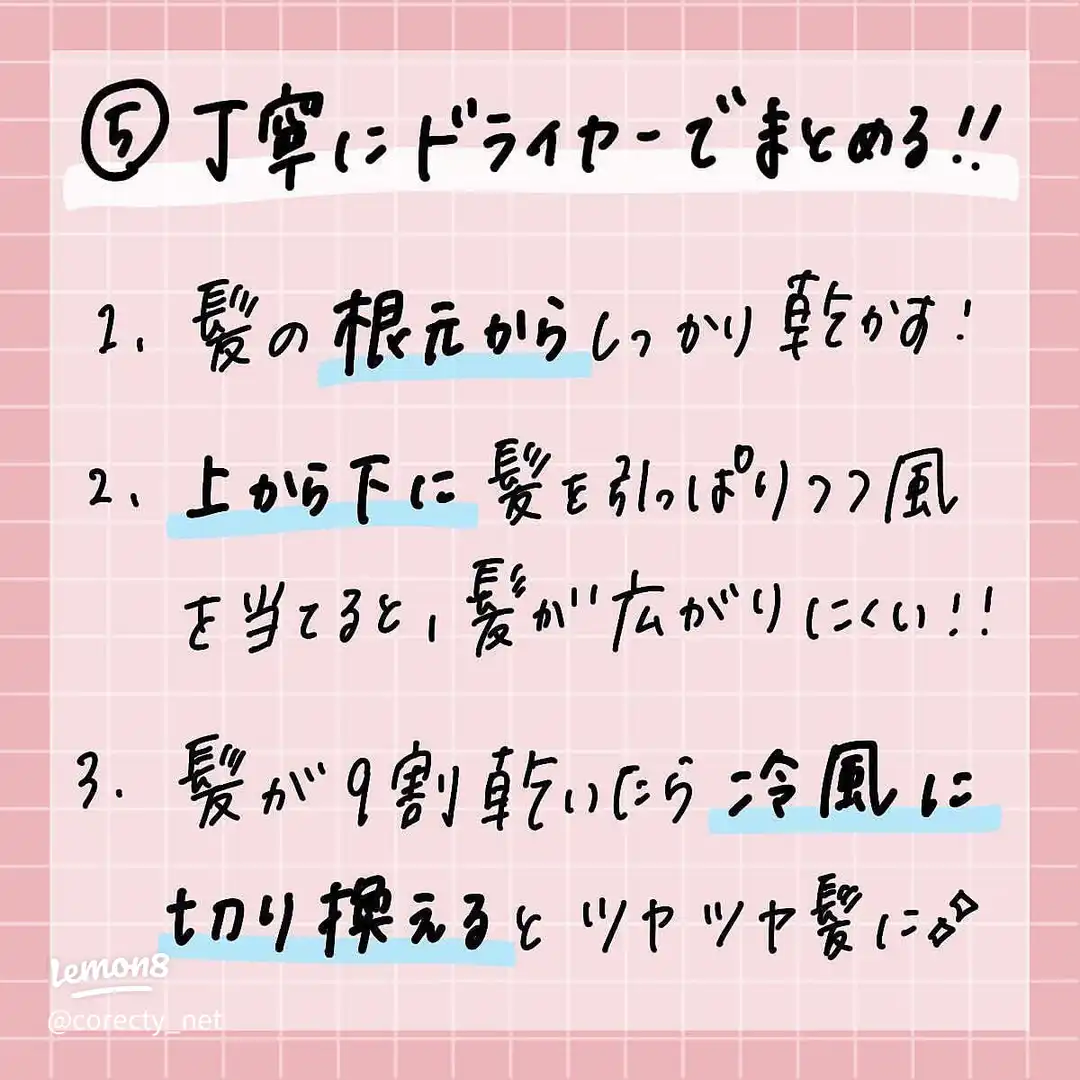 ⑤丁寧にドライヤーでまとめる!!
1. 髪の根元からしっかり乾かす!
2. 上から下に髪を引っぱりつつ風
を当てると、髪が広がりにくい!!
3. 髪が9割乾いたら冷風に
切り換えるとツヤツヤ髪に
lemon8
@corecty_net